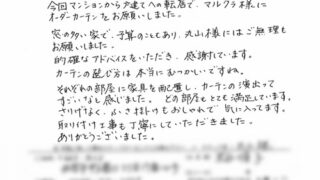 今回マンションから戸建てへの転居で、マルクラ様に
オーダーカーテンをお願いしました。
窓の多い家で、予算のこともあり、丸山様にはご無理も
お願いしました。
的確なアドバイスをいただき、感謝しています。
カーテンの選び方は本当にむつかしいですね。
それぞれの部屋に家具を配置し、カーテンの演出って
すごいなと感じました。どの部屋もとても満足しています。
さりげなく、ふさ掛けもおしゃれで気に入ってます。
取り付け工事も丁寧にしていただきました。
ありがとうございました。